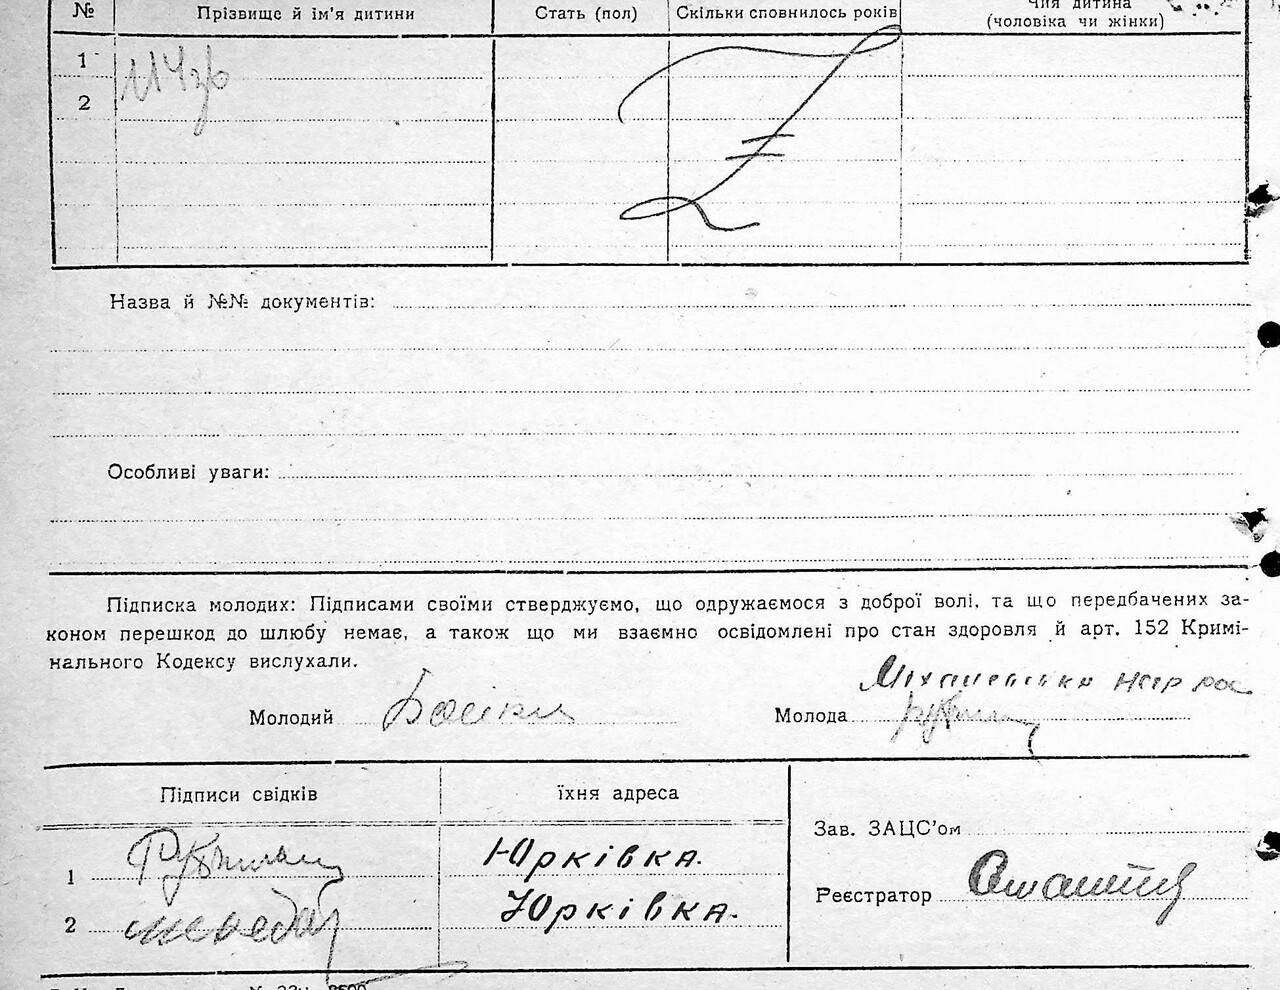 № Прізвище й ім'я дитини Стать (пол) Скільки сповнилось років Чия дитина
(чоловіка чи жінки)
1
2
Назва й №№ документів:
Особливі уваги:
Підписка молодих: Підписами своїми стверджуємо, що одружаємося з доброї волі, та що передбачених за-
коном перешкод до шлюбу немає, а також що ми взаємно освідомлені про стан здоровля й арт. 152 Кримі-
нального Кодексу вислухали.
Молодий Молода
Підписи свідків їхня адреса
Зав. ЗАЦС'ом
1 Юрківка.
Реєстратор
2 Юрківка.